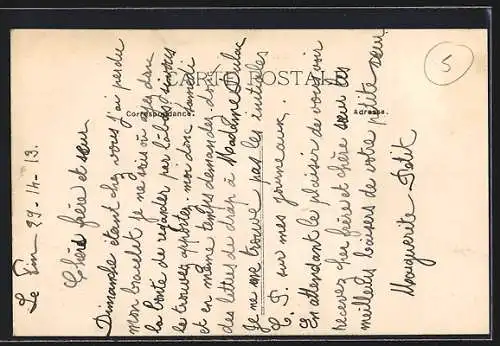 CARTE POSTALE
Correspondance.
Adresse.
5
Le 29-14-13.
Chers frère et sœur
Dimanche étant chez vous j'ai perdu
mon bracelet je ne sais où ayez donc
la bonté de regarder par là-bas si vous
le trouvez apportez-moi donc samedi
et en même temps demandez donc
des lettres de drap à Madame
Je ne me trouve pas les initiales
C. P. sur mes journeaux.
En attendant le plaisir de vous voir
recevez cher frère et chère sœur les
meilleurs baisers de votre petite sœur
Marguerite Petit